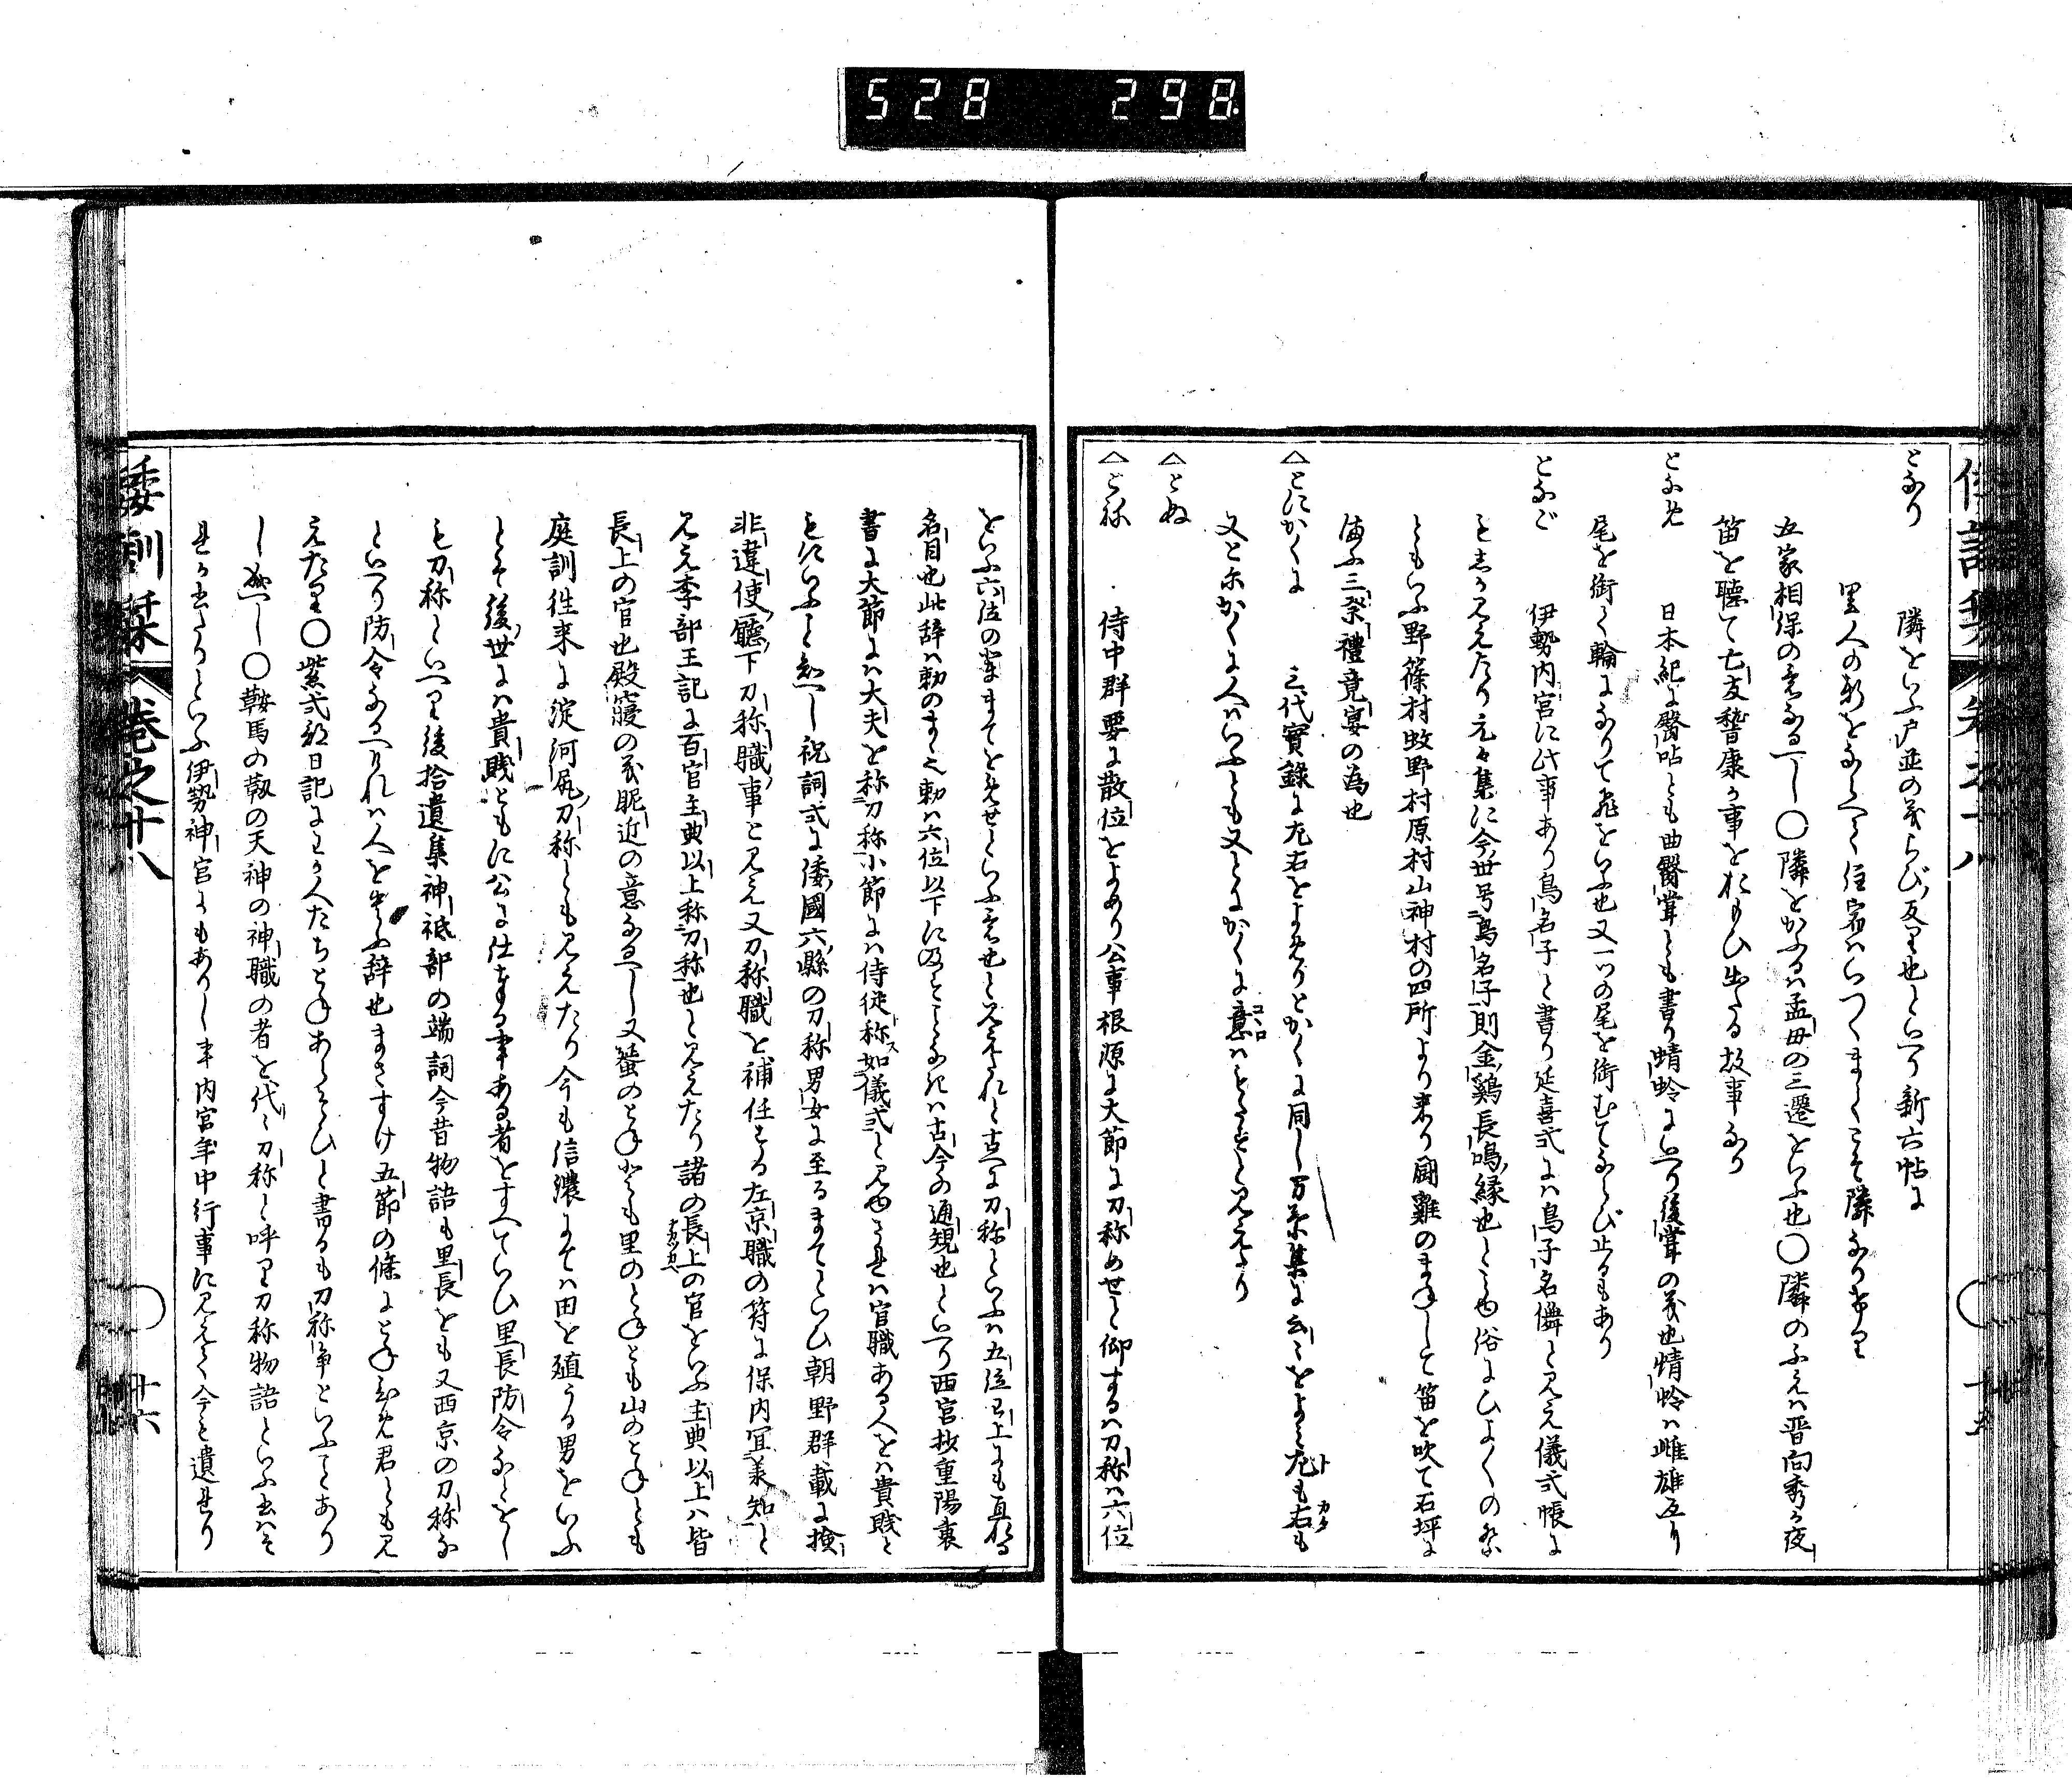 528 298
となり 隣をいふ戸並の義らび反り也といへり新六帖に
里人の軒をならべて住宿はいつくまてこそ隣なりけり
五家相保の意なるへし〇隣をかふるは孟母の三遷をいふ也〇隣のふえは晋向秀か夜
笛を聴て亡友嵆康か事をおもひ出たる故事なり
となめ 日本紀に臀呫とも曲臀嘗とも書り蜻蛉にいへり後嘗の義也蜻蛉は雌雄互り
尾を銜て輪になりて飛をいふ也又一つの尾を銜むてならび止るもあり
となご 伊勢内宮に此事あり鳥名子と書り延喜式には鳥子名儛と見え儀式帳に
もしか見えたり元々集に今世号鳥名子則金鷄長鳴縁也とも俗にひよくの祭
ともいふ野篠村蚊野村原村山神村の四所より来り闘雞のまねして笛を吹て石坪に
舞ふ三祭禮竟宴の為也
△とにかくに 三代實録に左右をよめりとかくに同し万葉集に云々をよむ左も右も
又とにかくに人はいふとも又とにかくに意はもたすと見えたり
△とぬ
△とね 侍中群要に散位をよめり公事根源に大節に刀称めせと仰するは刀称は六位
をいふ六位の輩まてをめせといふ意也と見えたれと古へに刀称といふは五位已上にも亘れる
名目也此辞は勅のまゝ也勅は六位以下に及ふことなきは古今の通規也といへり西宮抄重陽裏
書に大節には大夫を称刀称小節には侍従称如儀式と見ゆされは官職ある人をは貴賤と
もにいふと知へし祝詞式に倭國六縣の刀称男女に至るまてといひ朝野群載に撿
非違使廳下刀称職事と見え又刀称職を補任する左京職の符に保内宜兼知と
見え李部王記に百官主典以上称刀称也と見えたり諸の長上の官をいふ主典以上ハ皆
長上の官也殿寝の義昵近の意なるへし又蜑のとねなとも里のとねとも山のとねとも
庭訓徃来に淀河尻刀称とも見えたり今も信濃にては田を殖うる男をいふ
とそ後世には貴賤ともに公に仕まる事ある者をすへていひ里長防令なとをし
も刀称といへり後拾遺集神祇部の端詞今昔物語も里長をも又西京の刀称な
といへり防令なるへけれは人を導ふ辞也まさすけ五節の條にとねひめ君とも見
えたり〇紫式部日記にわか人たちとねあらそひと書るも刀祢争といふことあり
し成へし〇鞍馬の靱の天神の神職の者を代々刀称と呼り刀称物語といふ書は
〻か書たりといふ伊勢神官にもありし事内宮年中行事に見えて今も遺れり
倭訓栞 巻之十八 十六